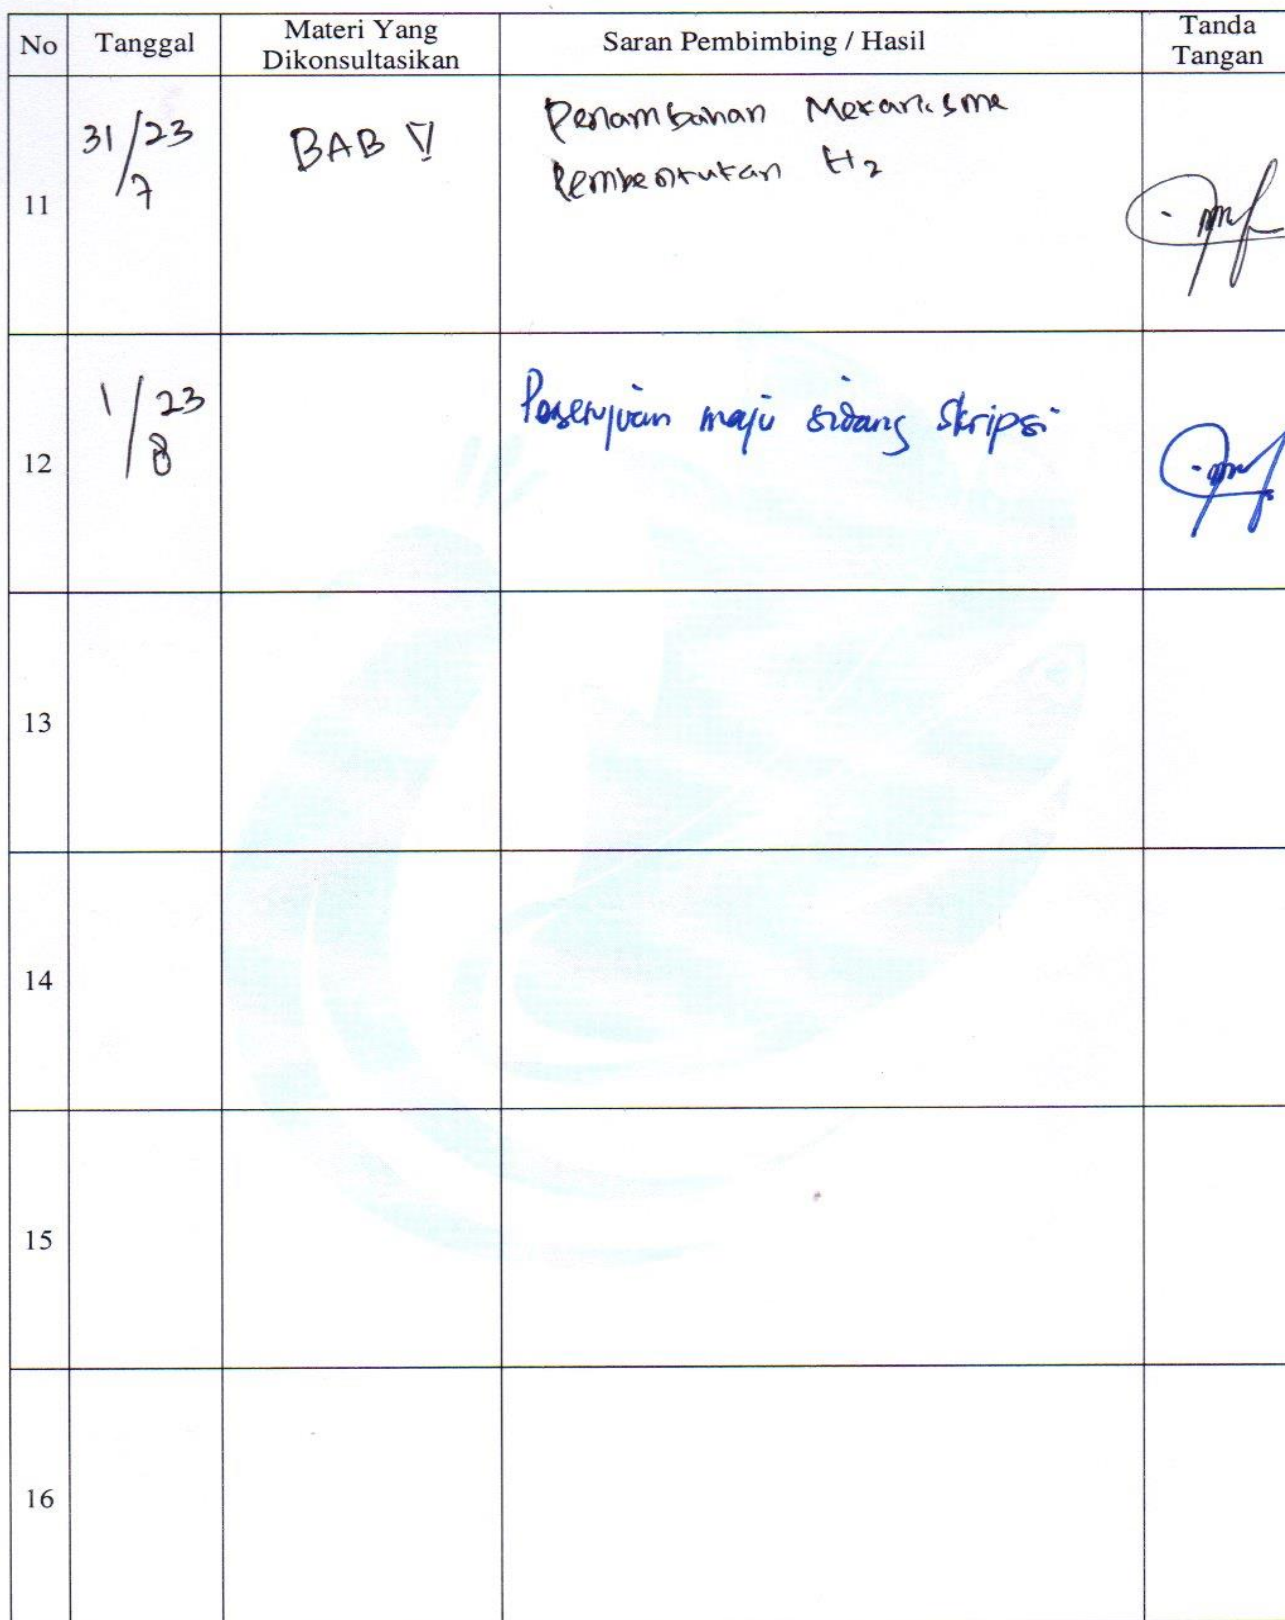 No Tanggal Materi Yang Dikonsultasikan Saran Pembimbing / Hasil Tanda Tangan
11 31/7 23 BAB V Penambahan Mekanisme
Pembentukan H2
12 1/8 23 Persetujuan maju sidang skripsi
13
14
15
16